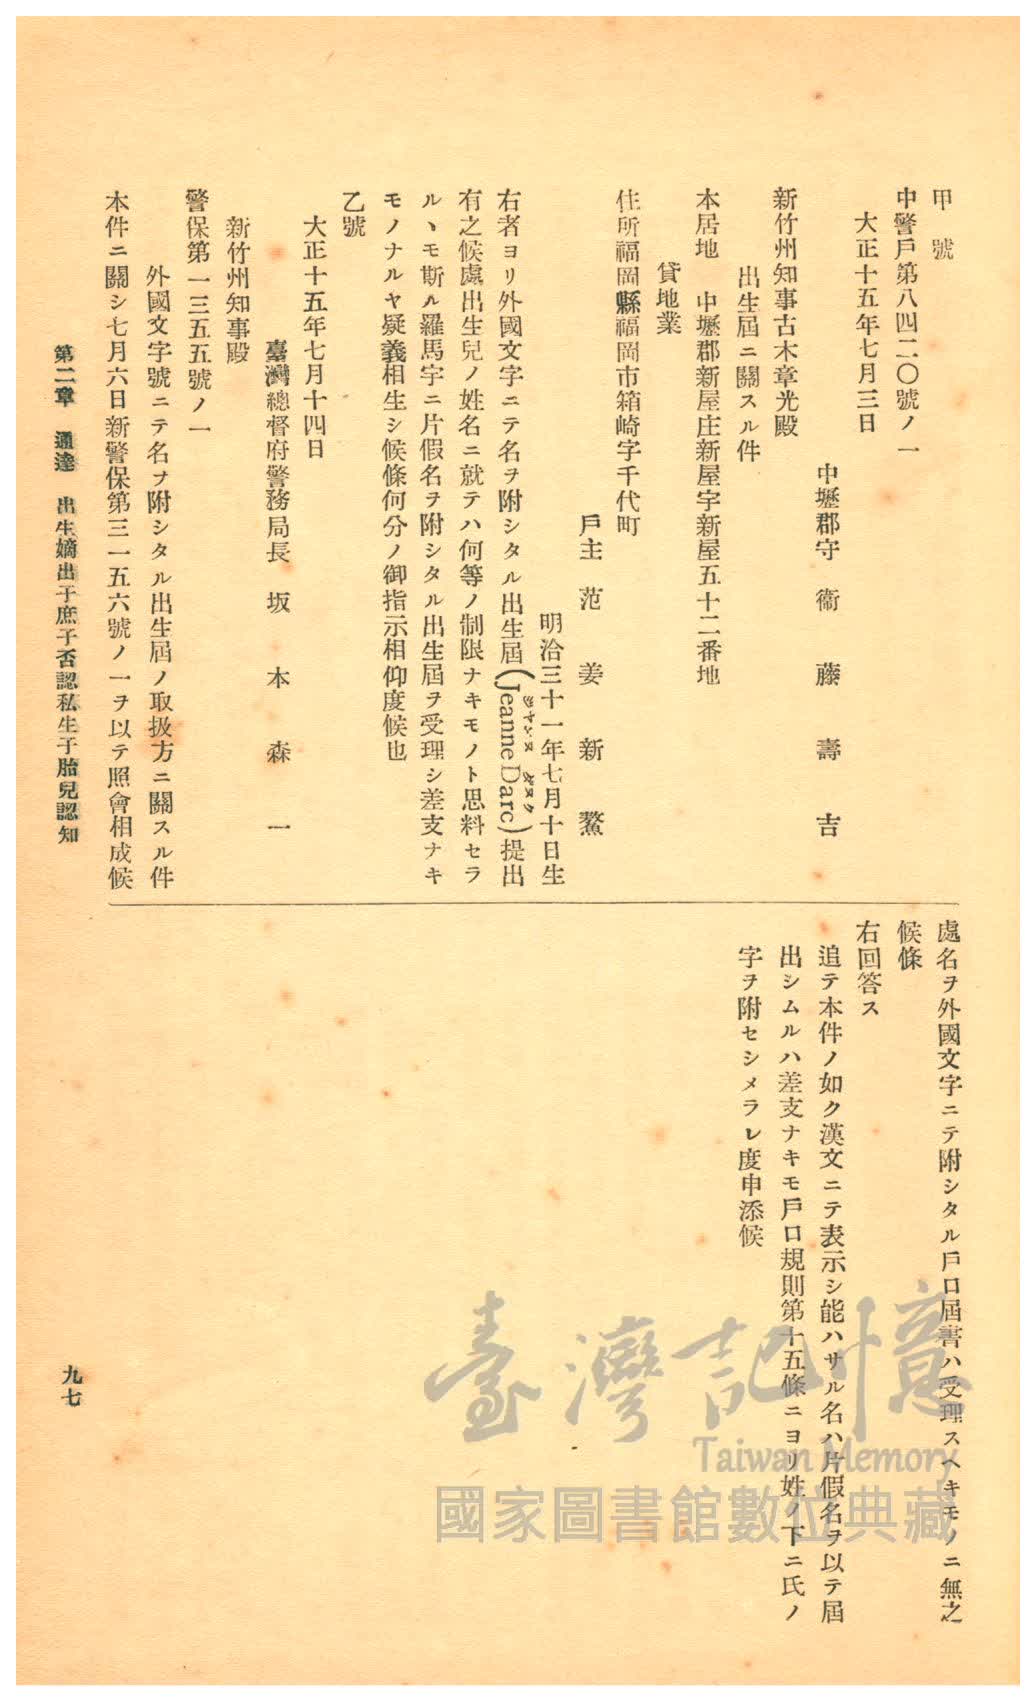 甲號
中警戶第八四二〇號ノ一
大正十五年七月三日
中壢郡守 衞藤壽吉
新竹州知事古木章光殿
出生屆ニ關スル件
本居地 中壢郡新屋庄新屋字新屋五十二番地
貸地業
住所福岡縣福岡市箱崎字千代町
戶主 范姜新鰲
明治三十一年七月十日生
右者ヨリ外國文字ニテ名ヲ附シタル出生屆(Jeanne Darc)提出
ジヤンヌ ダヌク
有之候處出生兒ノ姓名ニ就テハ何等ノ制限ナキモノト思料セラ
ルヽモ斯ル羅馬字ニ片假名ヲ附シタル出生屆ヲ受理シ差支ナキ
モノナルヤ疑義相生シ候條何分ノ御指示相仰度候也
乙號
大正十五年七月十四日
臺灣總督府警務局長 坂本森一
新竹州知事殿
警保第一三五五號ノ一
外國文字號ニテ名ヲ附シタル出生屆ノ取扱方ニ關スル件
本件ニ關シ七月六日新警保第三一五六號ノ一ヲ以テ照會相成候
處名ヲ外國文字ニテ附シタル戶口屆書ハ受理スヘキモノニ無之
候條
右回答ス
追テ本件ノ如ク漢文ニテ表示シ能ハサル名ハ片假名ヲ以テ屆
出シムルハ差支ナキモ戶口規則第十五條ニヨリ姓ノ下ニ氏ノ
字ヲ附セシメラレ度申添候
第二章 通達 出生嫡出子庶子否認私生子胎兒認知
九七
臺灣記憶
Taiwan Memory
國家圖書館數位典藏